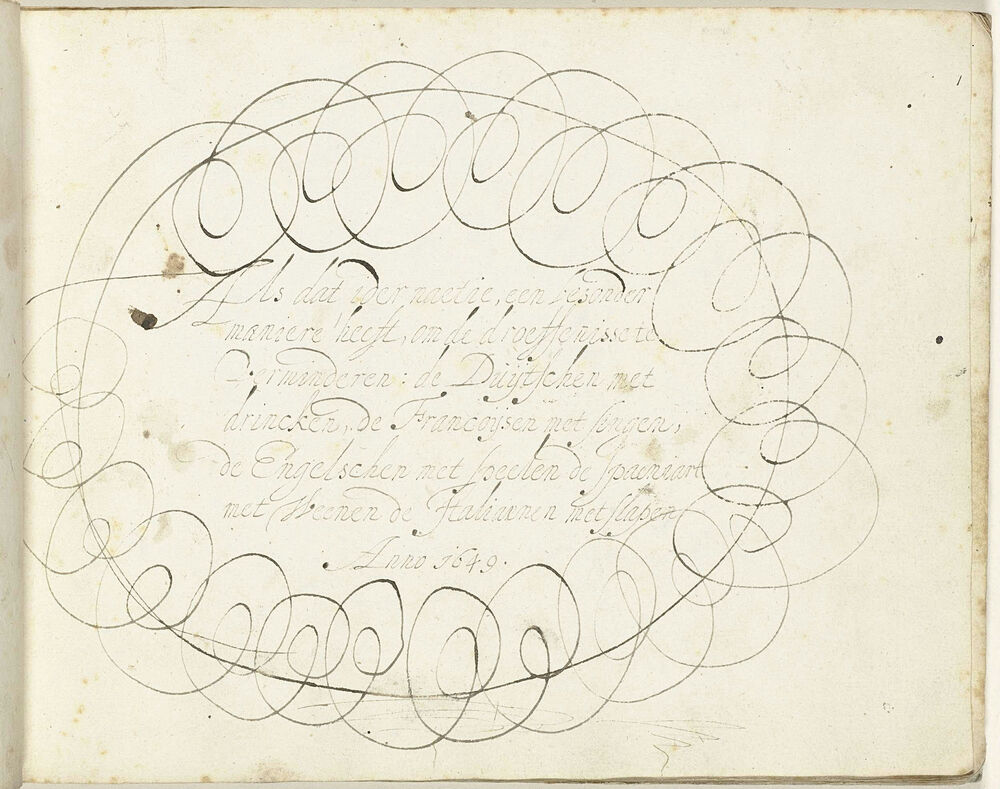 Als dat ider naetie, een besonder
maniere heeft, om de droeffenisse te
Verminderen: de Duijtschen met
drincken, de Francoijsen met singen,
de Engelschen met speelen de Spaeniart
met Weenen de Italiaenen met slapen
Anno 1649.
1